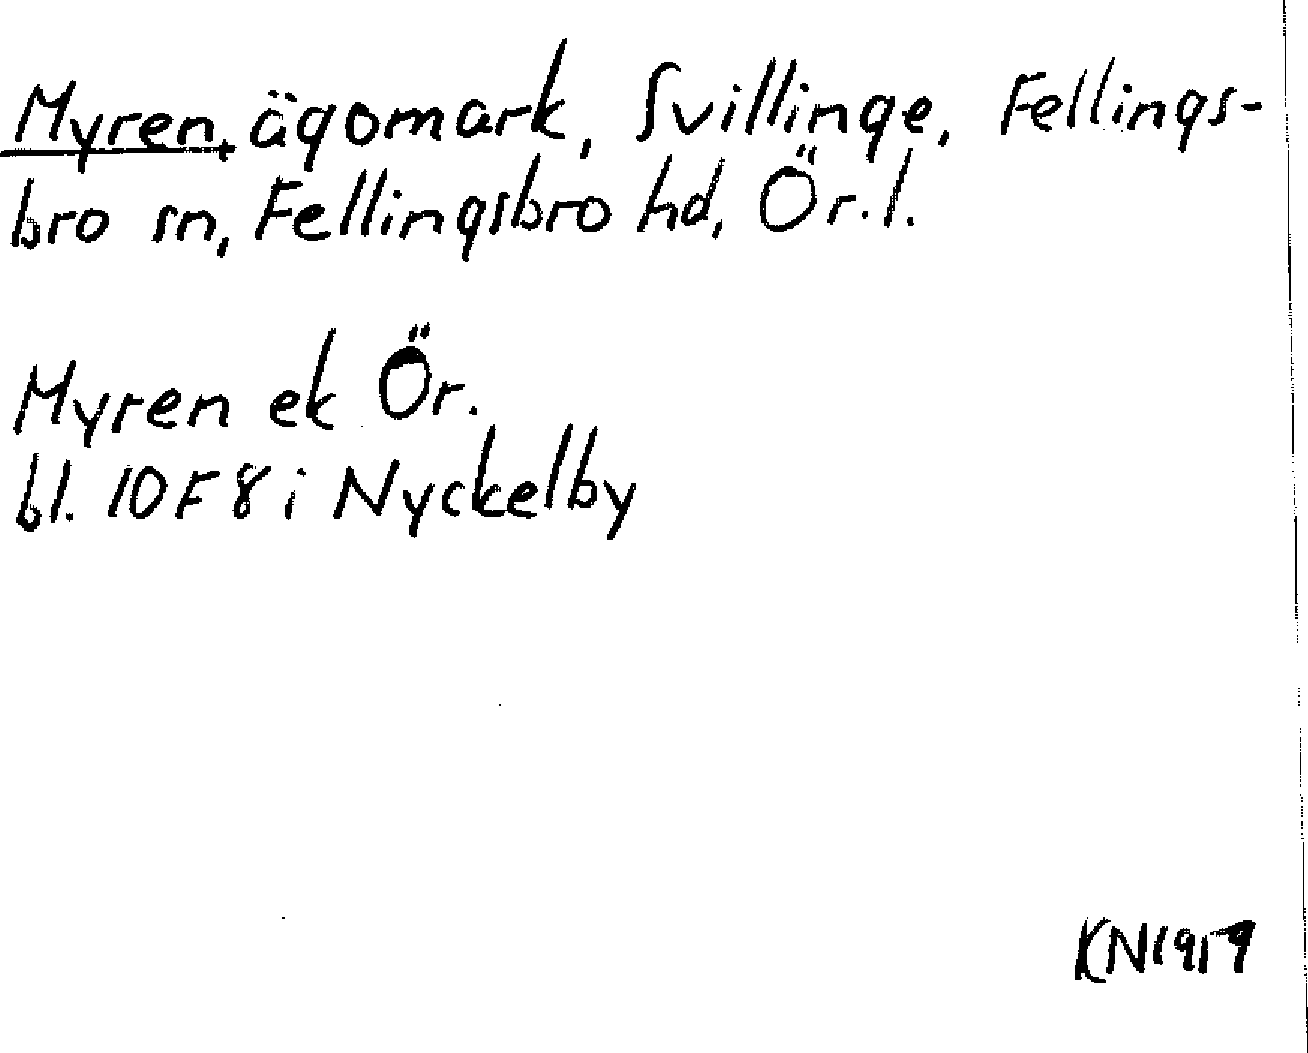 Myren, ägomark, Svillinge, Fellings-
bro sn, Fellingsbro hd, Ör.l.
Myren ek Ör.
bl. 10F8i Nyckelby